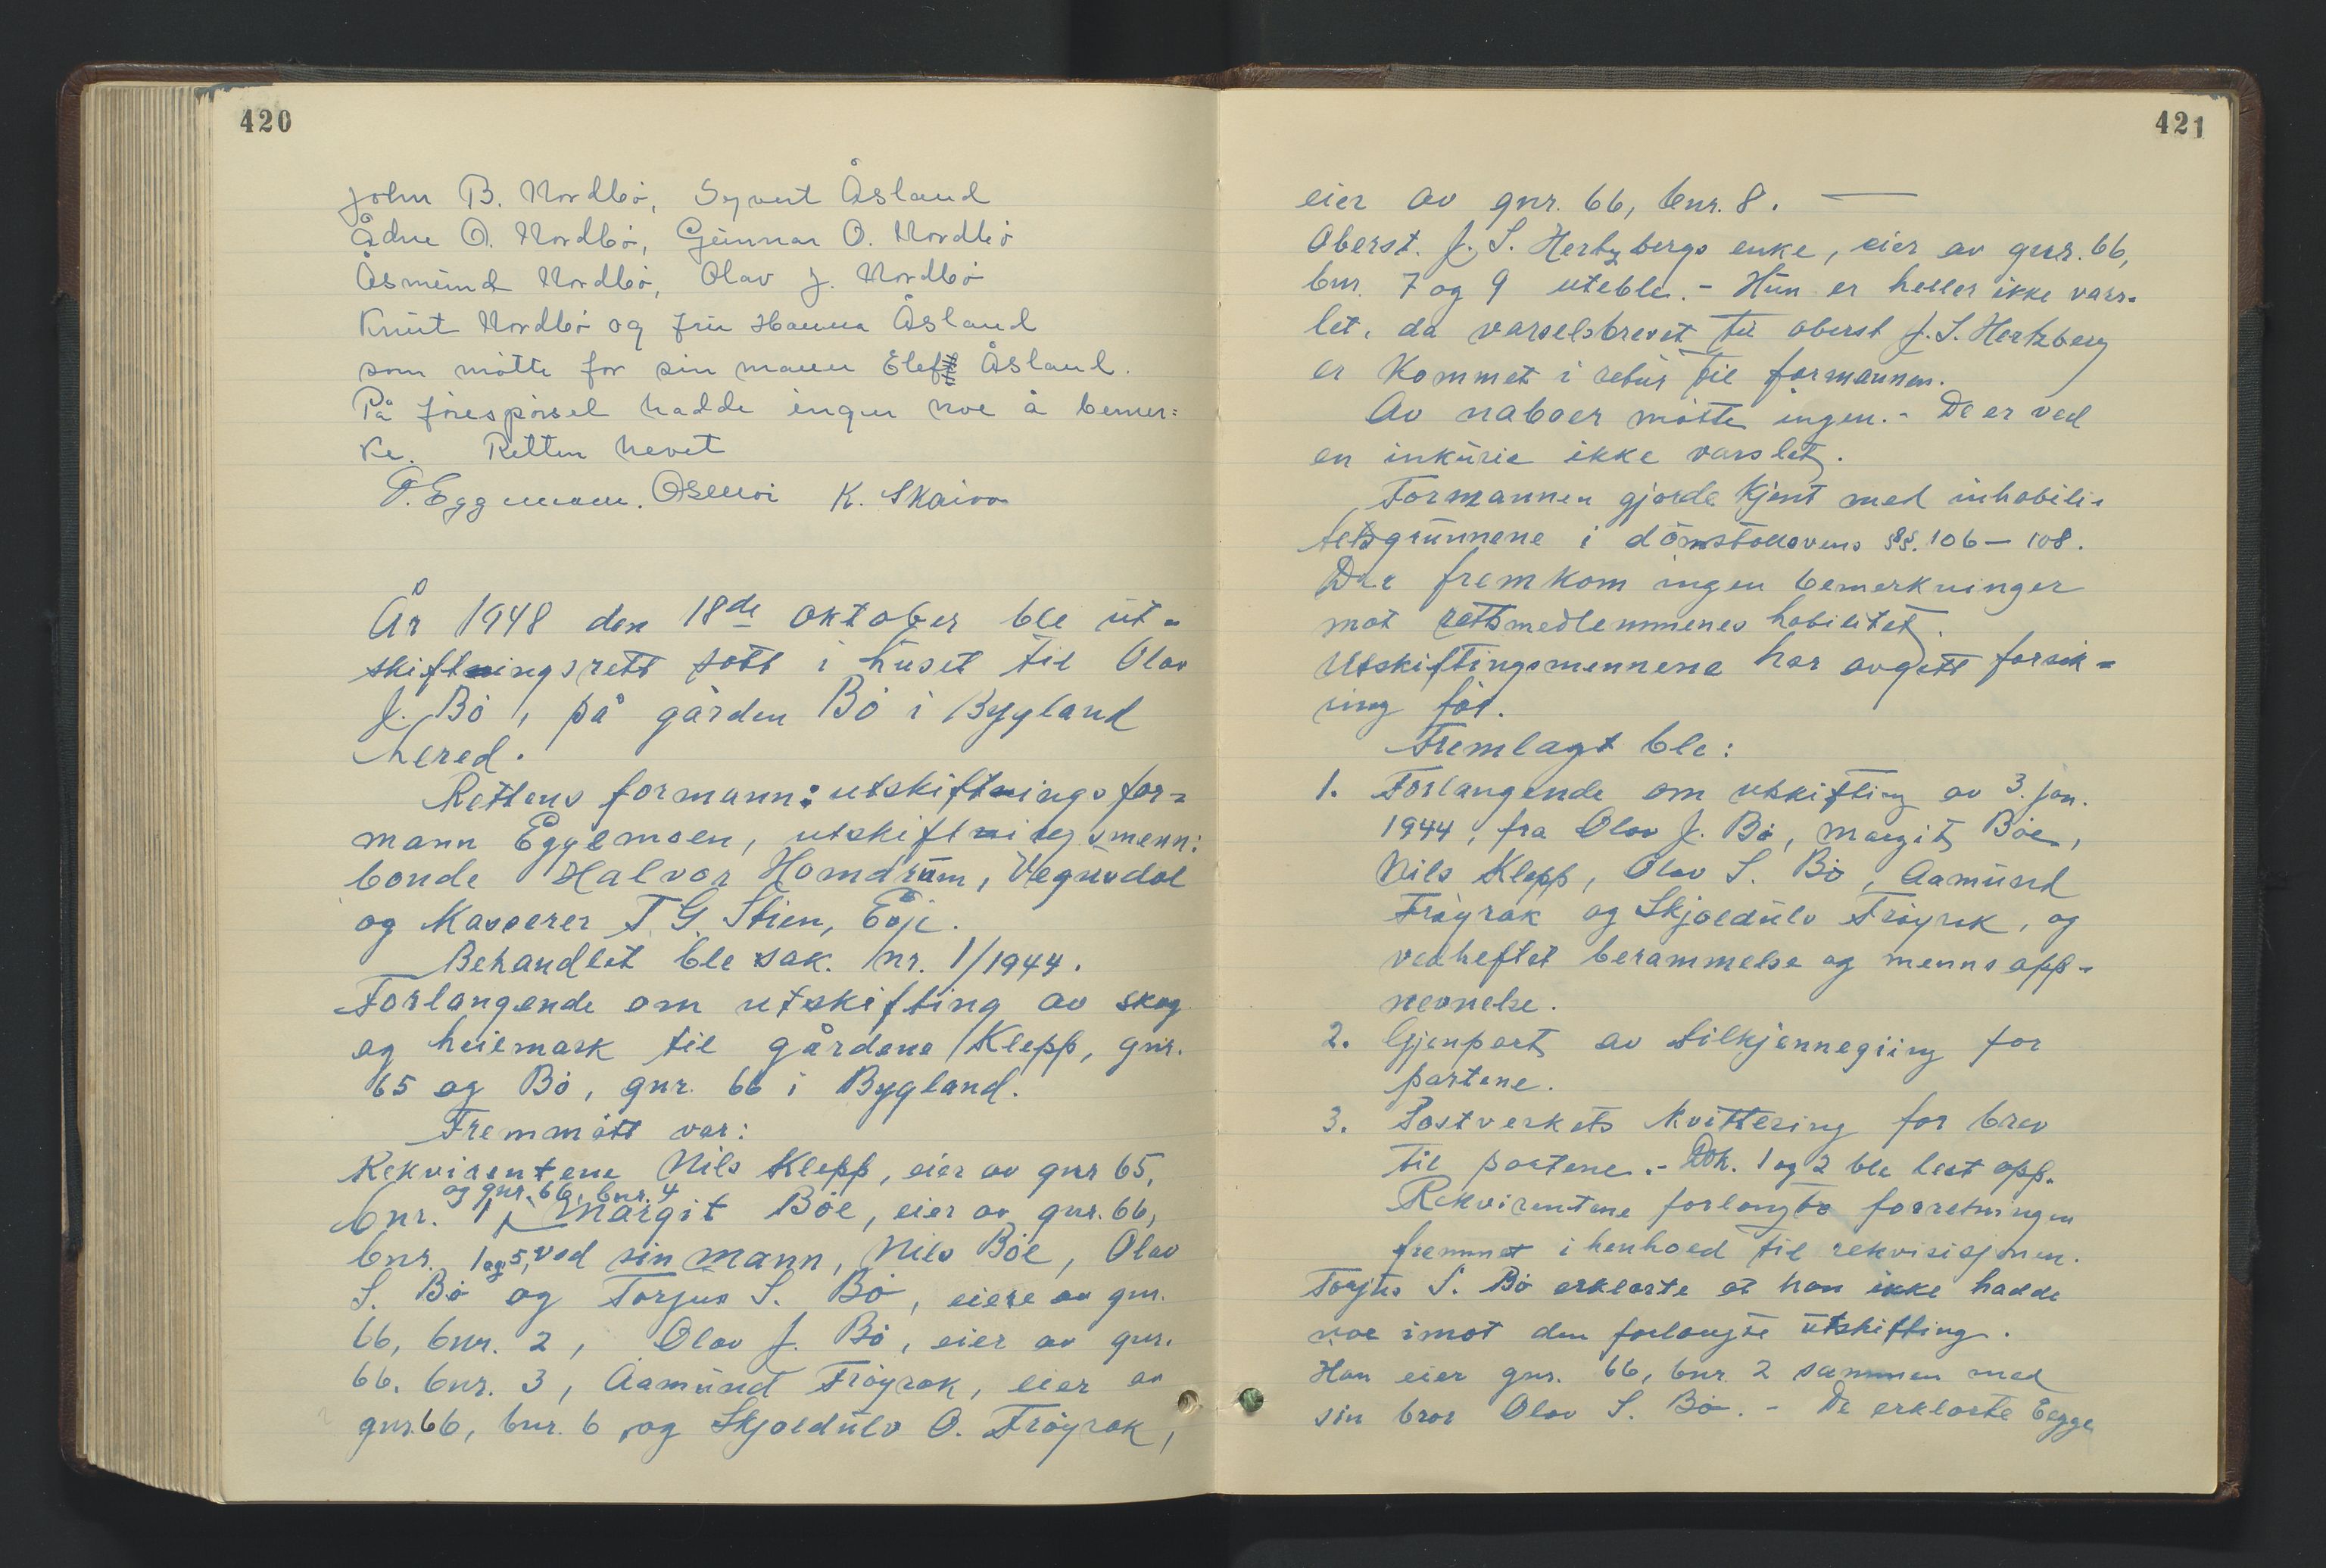 420
John B. Nordbö, Syvert Åsland
Ådne O. Nordbö, Gunnar O. Nordbö
Åsmund Nordbö, Olav J. Nordbö
Knut Nordbö og fru Hanna Åsland
som mötte for sin mann Elef Åsland.
På forespörsel hadde ingen noe å bemer=
ke. Retten hevet
T. Eggemoen. K. Skaiaa
År 1948 den 18de oktober ble ut-
skiftningsrett satt i huset til Olav
J. Bö, på gården Bö i Bygland
hered.
Rettens formann: utskiftningsfor-
mann Eggemoen, utskiftningsmenn:
bonde Halvor Homdrum, Vegusdal
og kasserer T. G. Stien, Evje.
Behandlet ble sak. nr. 1/1944.
Forlangende om utskifting av skog
og heiemark til gårdene Klepp, gnr.
65 og Bö, gnr. 66 i Bygland.
Fremmött var:
Rekvirentene Nils Klepp, eier av gnr 65,
og gnr. 66, bnr. 4
bnr. 1, Margit Böe, eier av gnr. 66,
bnr. 1 og 5, ved sin mann, Nils Böe, Olav
S. Bö og Torjus S. Bö, eiere av gnr.
66, bnr. 2, Olav J. Bö, eier av gnr.
66. bnr. 3, Aamund Fröyrak, eier av
gnr. 66, bnr. 6 og Skjoldulv O. Fröyrak,
421
eier av gnr. 66, bnr. 8. —
Oberst. J. S. Hertzbergs enke, eier av gnr. 66,
bnr. 7 og 9 uteble. - Hun er heller ikke vars-
let, da varselsbrevet til oberst J. S. Hertzberg
er kommet i retur til formannen.
Av naboer mötte ingen. - De er ved
en inkurie ikke varslet.
Formannen gjorde kjent med inhabili-
tetsgrunnene i domstollovens §§. 106 - 108.
Der fremkom ingen bemerkninger
mot rettsmedlemmenes habilitet.
Utskiftingsmennene har avgitt forsik-
ring för.
Fremlagt ble:
1. Forlangende om utskifting av 3. jan.
1944, fra Olav J. Bö, Margit Böe,
Nils Klepp, Olav S. Bö, Aamund
Fröyrak og Skjoldulv Fröyrak, og
vedheftet berammelse og mennsopp-
nevnelse.
2. Gjenpart av tilkjennegiing for
partene.
3. Postverkets kvittering for brev
til partene. - Dok. 1 og 2 ble lest opp.
Rekvirentene forlangte forretningen
fremmet i henhold til rekvisisjonen.
Torjus S. Bö erklærte at han ikke hadde
noe imot den forlangte utskifting.
Han eier gnr. 66, bnr. 2 sammen med
sin bror Olav S. Bö. - De erklærte begge